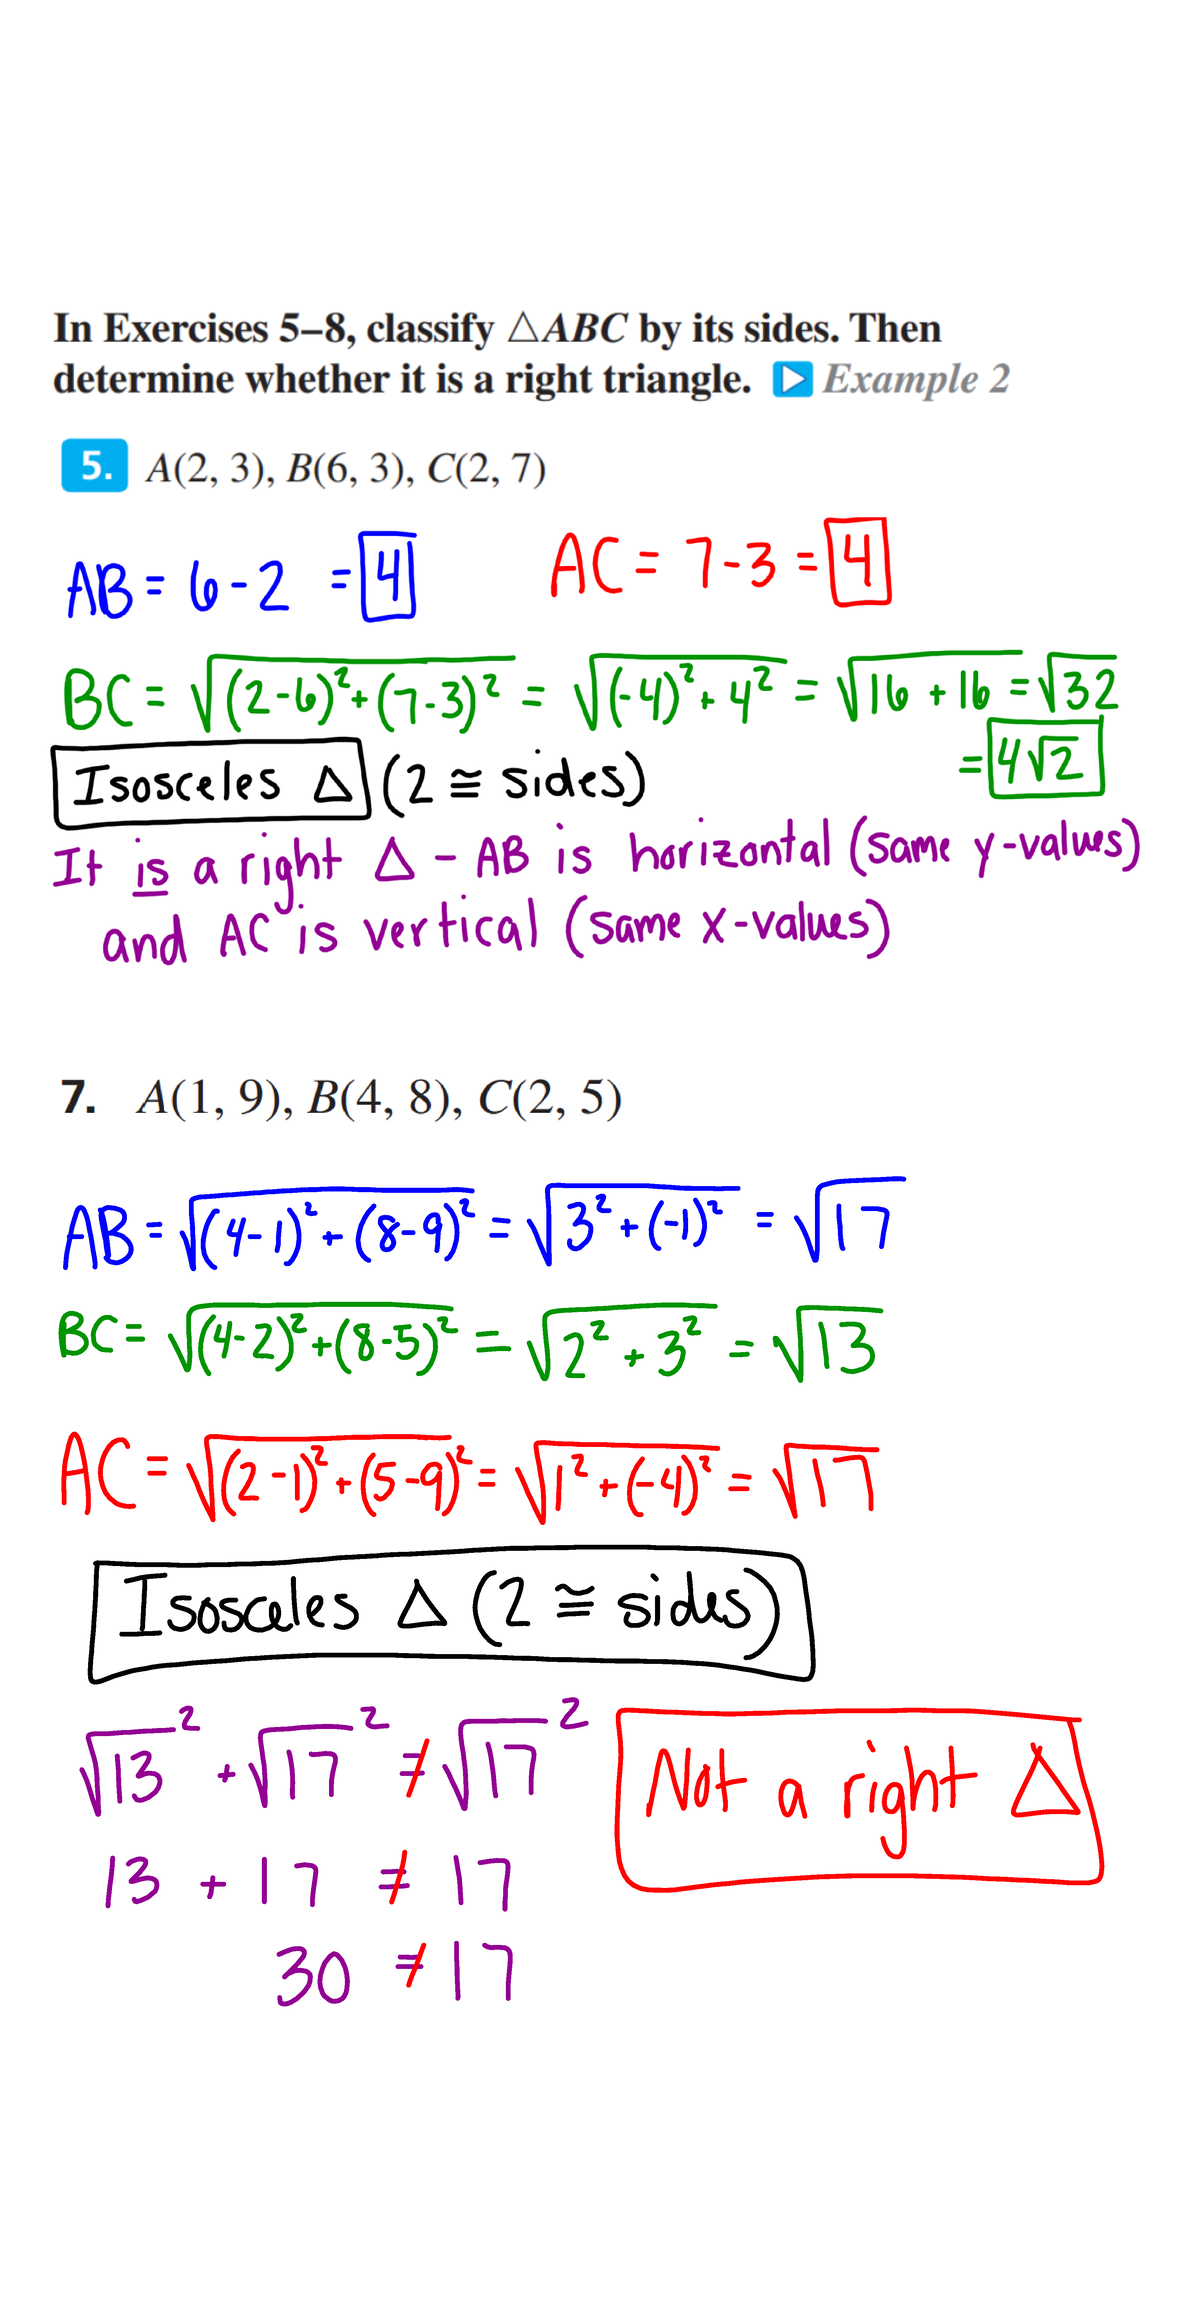 In Exercises 5–8, classify △ABC by its sides. Then
determine whether it is a right triangle. Example 2
5. A(2, 3), B(6, 3), C(2, 7)
AB = 6 - 2 = 4 AC = 7 - 3 = 4
BC = √(2-6)² + (7-3)² = √(-4)² + 4² = √16 + 16 = √32
= 4√2
Isosceles △ (2 ≅ sides)
It is a right △ - AB is horizontal (same y-values)
and AC is vertical (same x-values)
7. A(1, 9), B(4, 8), C(2, 5)
AB = √(4-1)² + (8-9)² = √3² + (-1)² = √17
BC = √(4-2)² + (8-5)² = √2² + 3² = √13
AC = √(2-1)² + (5-9)² = √1² + (-4)² = √17
Isosceles △ (2 ≅ sides)
√13² + √17² ≠ √17² Not a right △
13 + 17 ≠ 17
30 ≠ 17